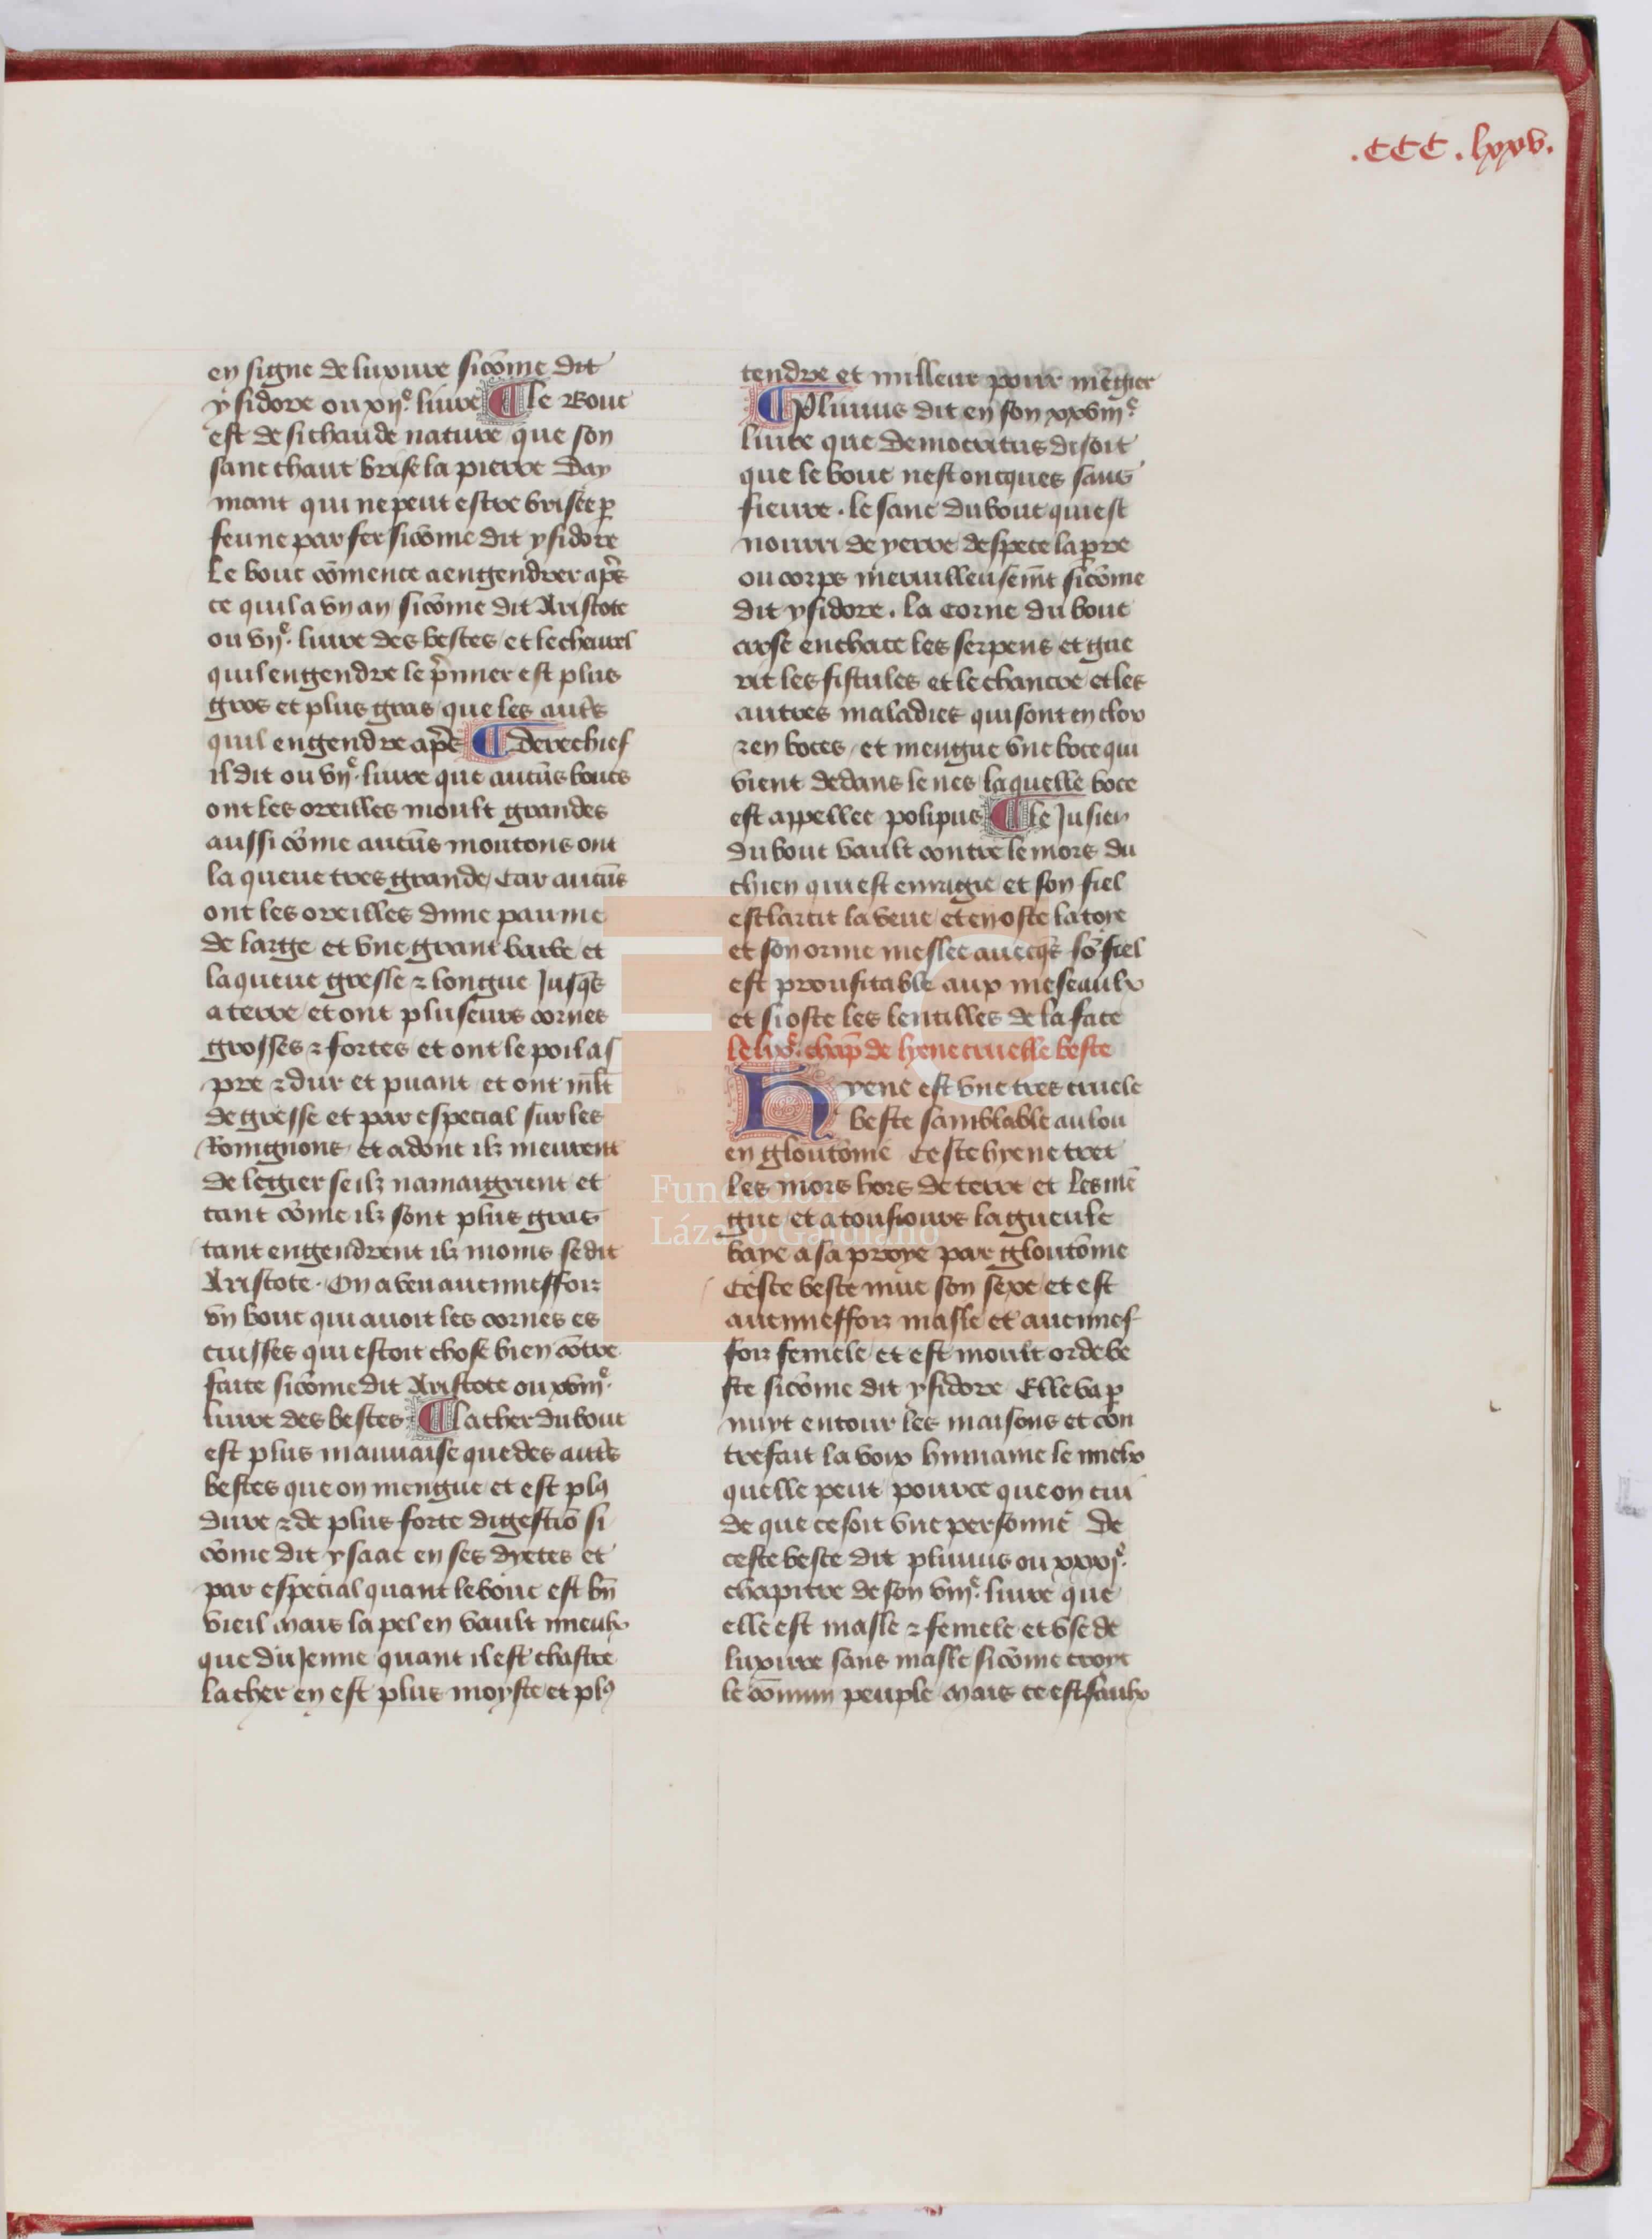 .CCC.lxxv.
en signe de luxure sicōme dit
ysidore ou xijᵉ. livre ¶ le bouc
est de si chaude nature que son
sanc chaut brise la pierre day
mant qui ne peut estre brisee ꝑ
feu ne par fer sicōme dit ysidore
Le bouc cōmence a engendrer apͤs
ce quil a vn an sicōme dit Aristote
ou vijᵉ. livre des bestes et le chevrel
quil engendre le pͥmier est plus
gros et plus gras que les autͤs
quil engendre apͤs ¶ Derechief
il dit ou vijᵉ. livre que aucūs boucs
ont les oreilles moult grandes
aussi cōme aucūs moutons ont
la queue tres grande / Car aucūs
ont les oreilles dune paume
de large et vne grant barbe et
la queue gresle ⁊ longue jusqͤs
a terre / et ont pluseurs cornes
grosses ⁊ fortes et ont le poil as
pre ⁊ dur et puant et ont mlt̄
de gresse et par especial sur les
Roingnons et adonc ilz meurent
de legier se ilz namaigrient et
tant cōme ilz sont plus gras
tant engendrent ilz moins se dit
Aristote. On a veu aucuneffoiz
vn bouc qui avoit les cornes es
cuisses qui estoit chose bien cōtre
faite sicōme dit Aristote ou xviijᵉ.
livre des bestes ¶ La cher du bouc
est plus mauvaise que des autͤs
bestes que on mengue et est plꝰ
dure ⁊ de plus forte digestiō si
cōme dit ysaac en ses dyetes et
par especial quant le bouc est bn̄
vieil mais la pel en vault mieulx
que du jenne quant il est chastre
la cher en est plus moyste et plꝰ
tendre et milleur pour mēgier
¶ Plinius dit en son xxviijᵉ.
livre que democritus disoit
que le bouc nest oncques sans
fievre. le sanc du bouc qui est
nourri de yerre despece la pͥrre
ou corps merveilleusemt̄ sicōme
dit ysidore. la corne du bouc
arse enchace les serpens et gue
rit les fistules et le chancre et les
autres maladies qui sont en clov
⁊ en boces / et mengue vne boce qui
vient dedans le nes laquelle boce
est appellee polipus ¶ le jusier
du bouc vault contre le mors du
chien qui est enragie et son fiel
esclarcit la veue et en oste la toye
et son orine meslee avecqͤs sō fiel
est proufitable aux meseaulx
et si oste les lentilles de la face
Le lxᵉ. chap̄ de hyene cruelle beste
Hyene est vne tres cruele
beste samblable au lou
en gloutōnie Ceste hyene tret
les mors hors de terre et les mē
gue / et a tousiours la gueule
baye a sa proye par gloutōnie
Ceste beste mue son sexe et est
aucuneffoiz masle et aucunef
foiz femele et est moult orde be
ste sicōme dit ysidore Elle va ꝑ
nuyt entour les maisons et con
trefait la voix humaine le mielx
quelle peut pource que on cui
de que ce soit vne personne De
ceste beste dit plinius ou xxxjᵉ.
chapitre de son viijᵉ. livre que
elle est masle ⁊ femele et vse de
luxure sans masle sicōme croyt
le cōmun peuple mais ce est faulx
Fundación
Lázaro Galdiano